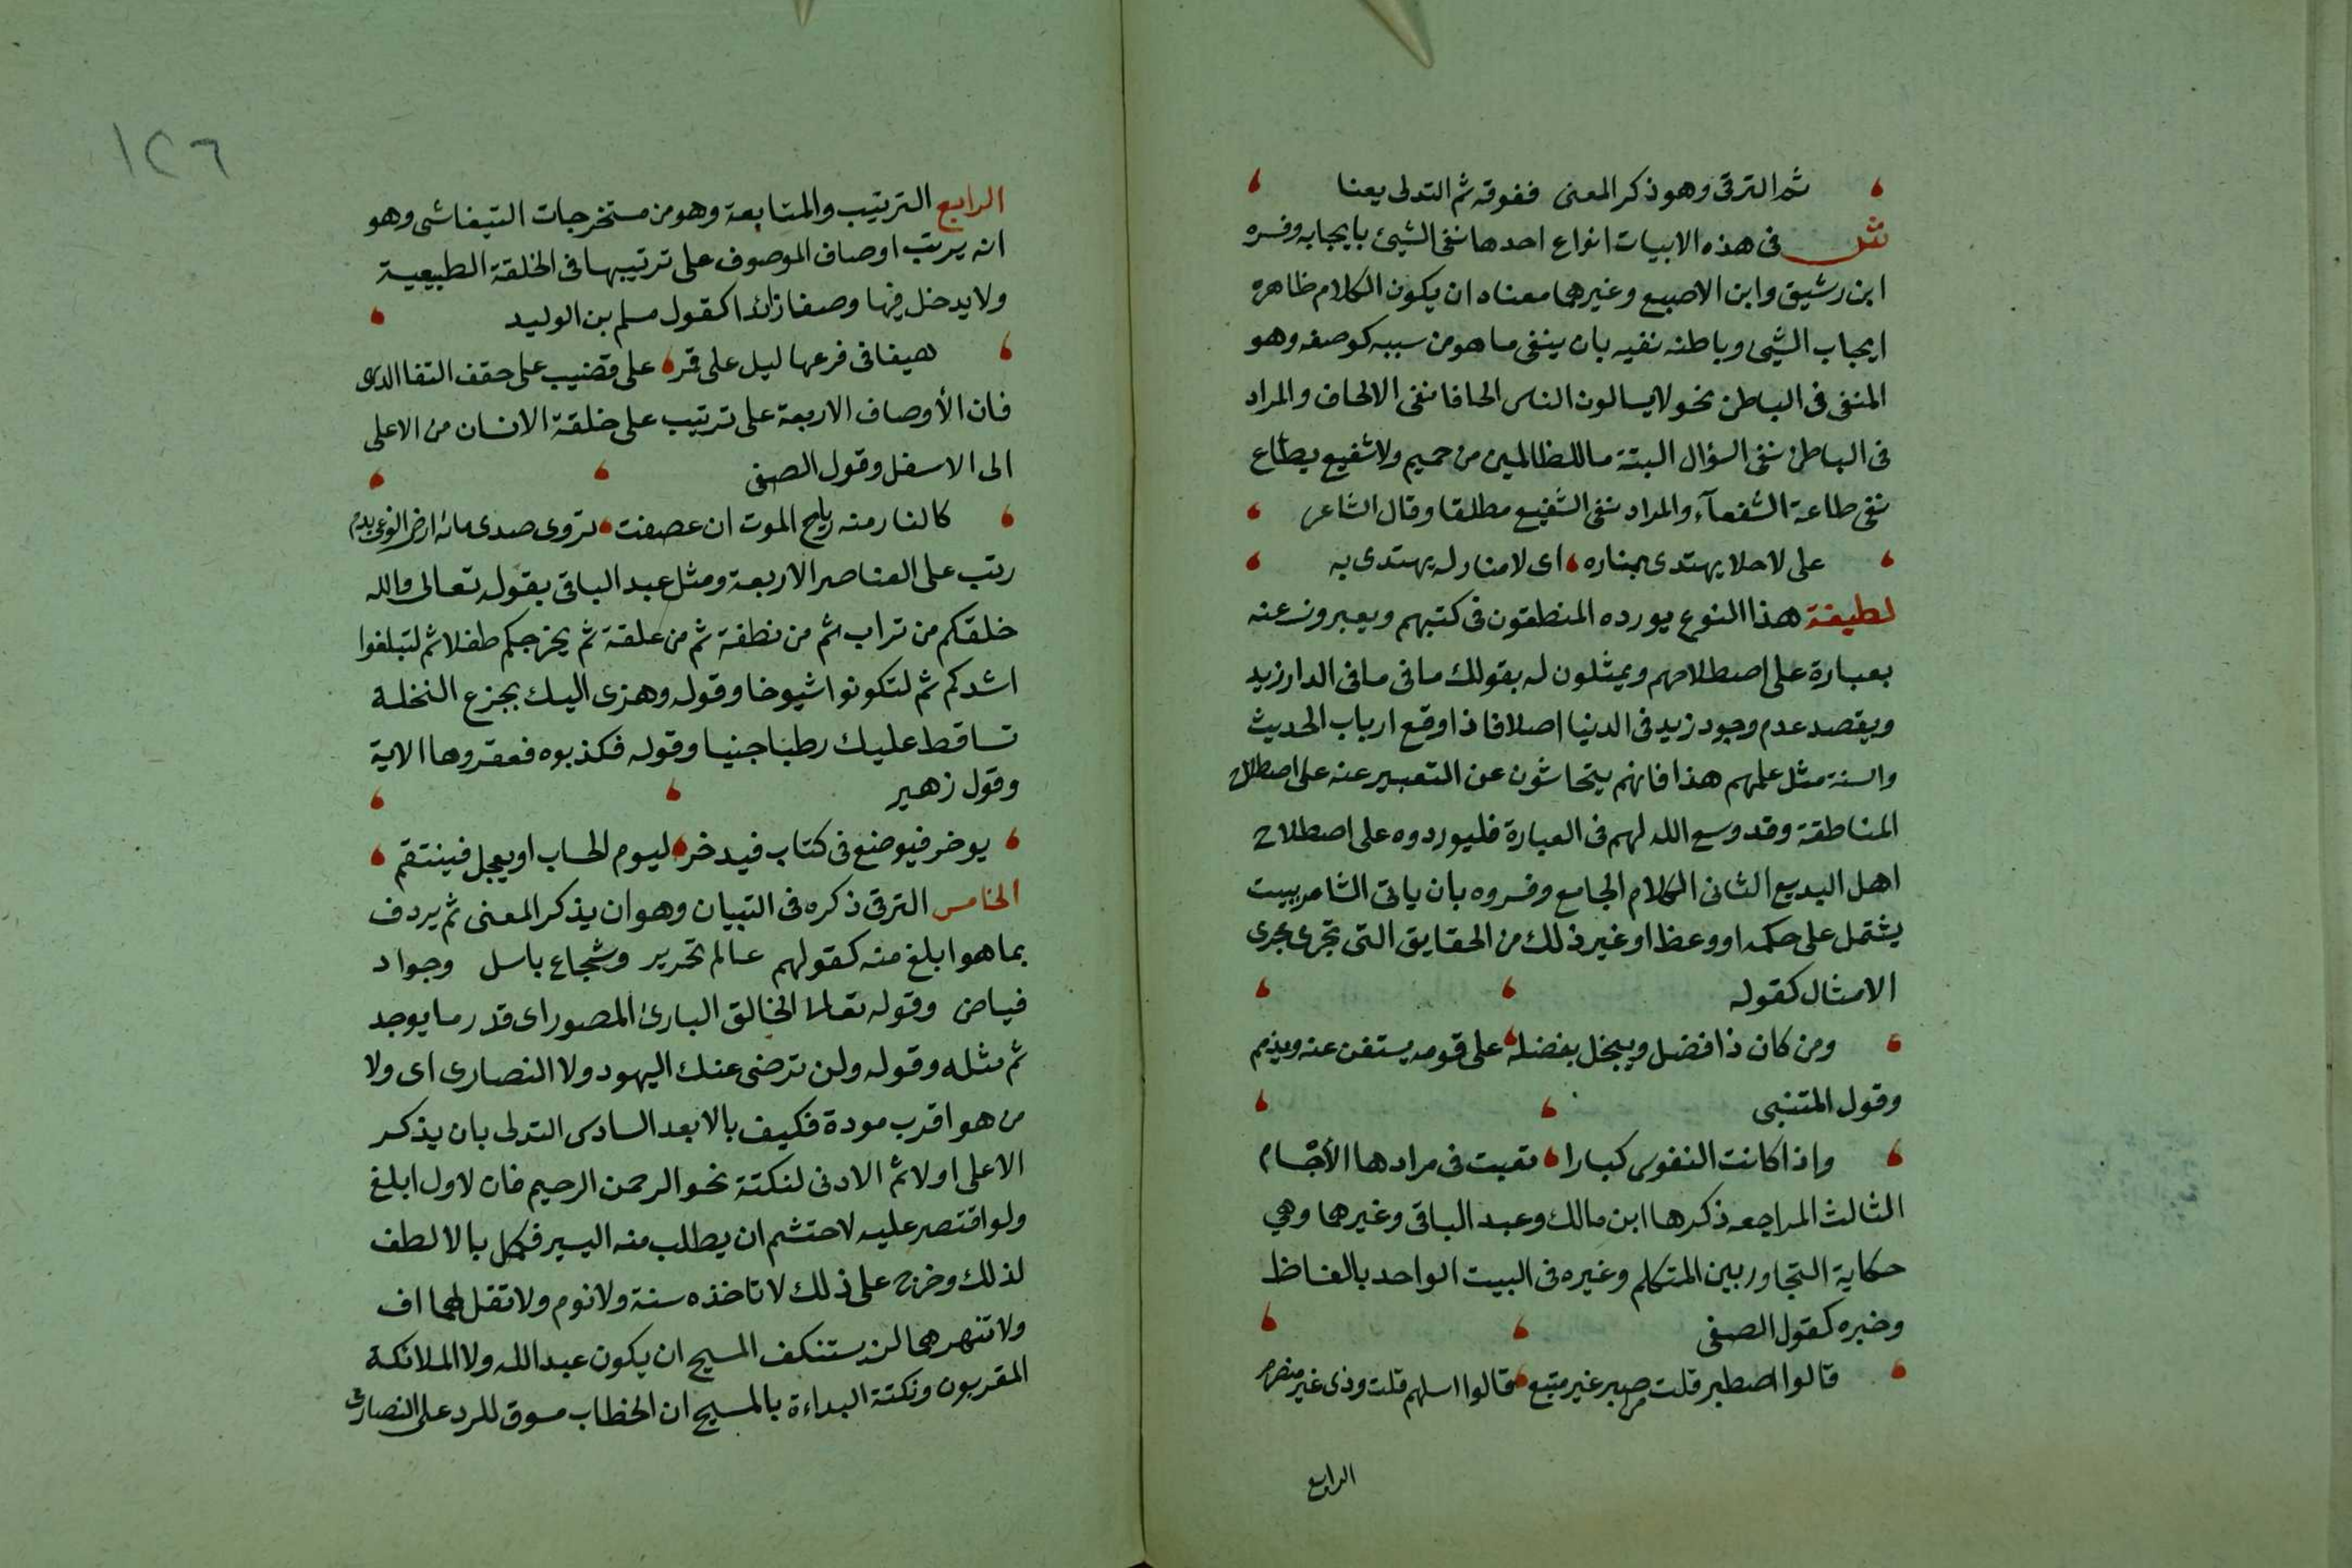 ثم الترقى وهو ذكر المعنى ففوقه ثم التدلى يعنا
ش فى هذه الابيات انواع احدها نفى الشيئ بايجابه وفسره
ابن رشيق وابن الاصبع وغيرهما معناه ان يكون الكلام ظاهره
ايجاب الشيئ وباطنه نفيه بان ينفى ما هو من سببه كوصفه وهو
المنفى فى الباطن نحو لا يسالون الناس الحافا نفى الالحاف والمراد
فى الباطن نفى السؤال البتة ما للظالمين من حميم ولا شفيع يطاع
نفى طاعة الشفعآء والمراد نفى الشفيع مطلقا وقال الشاعر
على لاحلا يهتدى بمناره اى لا منار له يهتدى به
لطيفة هذا النوع يورده المنطقون فى كتبهم ويعبرون عنه
بعبارة على اصطلاحهم ويمثلون له بقولك ما فى ما فى الدار زيد
ويقصد عدم وجود زيد فى الدنيا اصلا فاذا وقع ارباب الحديث
والسنة مثل علمهم هذا فانهم يتحاشون عن التعبير عنه على اصطلاح
المناطقة وقد وسع الله لهم فى العبارة فليوردوه على اصطلاح
اهل البديع الثانى الكلام الجامع وفسروه بان ياتى الشاعر ببيت
يشتمل على حكمه او وعظ او غير ذلك من الحقايق التى تجرى مجرى
الامثال كقوله
ومن كان ذا فضل ويبخل بفضله على قومه يستغن عنه ويذمم
وقول المتنبى
واذا كانت النفوس كبارا تعبت فى مرادها الأجسام
الثالث المراجعه ذكرها ابن مالك وعبد الباقى وغيرهما وهي
حكاية التجاور بين المتكلم وغيره فى البيت الواحد بالفاظ
وخبره كقول الصفى
قالوا اصطبر قلت صبر غير متبع قالوا اسلهم قلت وذى غير منصرم
الرابع
١٢٦
الرابع الترتيب والمتابعة وهو من مستخرجات التيفاشى وهو
انه يرتب اوصاف الموصوف على ترتيبها فى الخلقة الطبيعية
ولا يدخل فيها وصفا زائدا كقول مسلم بن الوليد
هيفا فى فرعها ليل على قمر على قضيب على حقف النقا الدى
فان الأوصاف الاربعة على ترتيب على خلقة الانسان من الاعلى
الى الاسفل وقول الصفى
كالنار منه رياح الموت ان عصفت تروى صدى مائه ارض الوغى بدم
رتب على العناصر الاربعة ومثل عبد الباقى بقوله تعالى والله
خلقكم من تراب ثم من نطفة ثم من علقة ثم يخرجكم طفلا ثم لتبلغوا
اشدكم ثم لتكونوا شيوخا وقوله وهزى اليك بجزع النخلة
تساقط عليك رطبا جنيا وقوله فكذبوه فعقروها الاية
وقول زهير
يوخر فيوضع فى كتاب فيدخر ليوم الحساب او يعجل فينتقم
الخامس الترقى ذكره فى التبيان وهو ان يذكر المعنى ثم يردف
بما هو ابلغ منه كقولهم عالم نحرير وشجاع باسل وجواد
فياض وقوله تعالى الخالق البارئ المصور اى قدر ما يوجد
ثم مثله وقوله ولن ترضى عنك اليهود ولا النصارى اى ولا
من هو اقرب مودة فكيف بالابعد السادس التدلى بان يذكر
الاعلى اولا ثم الادنى لنكتة نحو الرحمن الرحيم فان لاول ابلغ
ولو اقتصر عليه لاحتشم ان يطلب منه اليسير فكمل بالالطف
لذلك وخرج على ذلك لا تاخذه سنة ولا نوم ولا تقل لهما اف
ولا تنهرهما لن يستنكف المسيح ان يكون عبد الله ولا الملائكة
المقربون ونكتة البداءة بالمسيح ان الخطاب مسوق للرد على النصارى